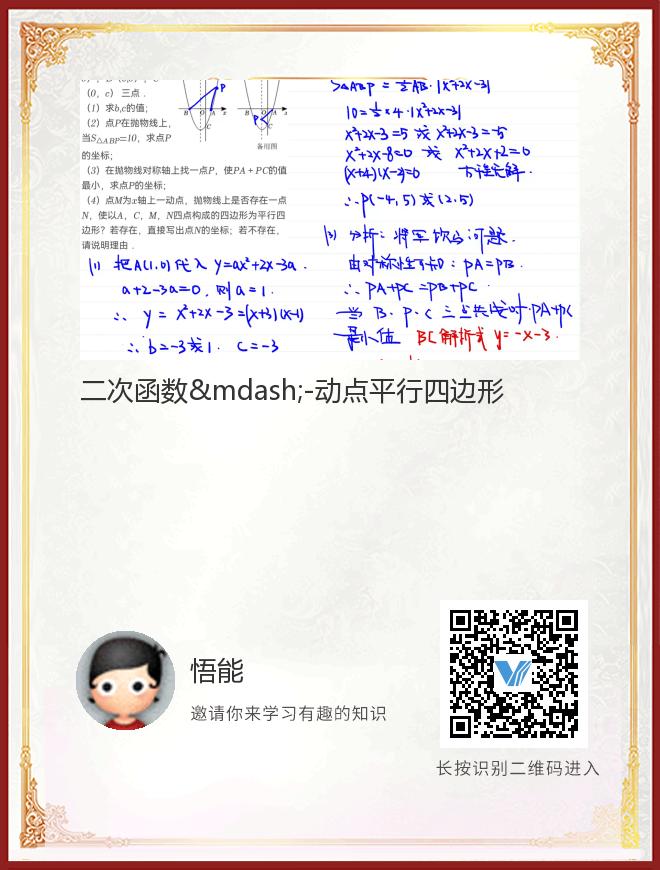 （0，c） 三点．
（1）求b,c的值；
（2）点P在抛物线上，
当S△ABP=10，求点P
的坐标；
（3）在抛物线对称轴上找一点P，使PA+PC的值
最小，求点P的坐标；
（4）点M为x轴上一动点，抛物线上是否存在一点
N，使以A，C，M，N四点构成的四边形为平行四
边形？若存在，直接写出点N的坐标；若不存在，
请说明理由．
P
B O A x
B O A x
P
C
备用图
(1) 把A(1,0)代入 y=ax²+2x-3a.
a+2-3a=0, 则a=1.
∴ y= x²+2x-3=(x+3)(x-1)
∴ b=-3或1. C=-3
S△ABP = ½AB·|x²+2x-3|
10=½×4·|x²+2x-3|
x²+2x-3=5 或 x²+2x-3=-5
x²+2x-8=0 或 x²+2x+2=0
(x+4)(x-2)=0 方程无解.
∴P(-4,5)或(2,5)
(3) 分析：将军饮马问题.
由对称性可知：PA=PB.
∴ PA+PC=PB+PC.
当 B、P、C 三点共线时.PA+PC
最小值 BC解析式 y=-x-3.
二次函数&mdash;-动点平行四边形
悟能
邀请你来学习有趣的知识
长按识别二维码进入